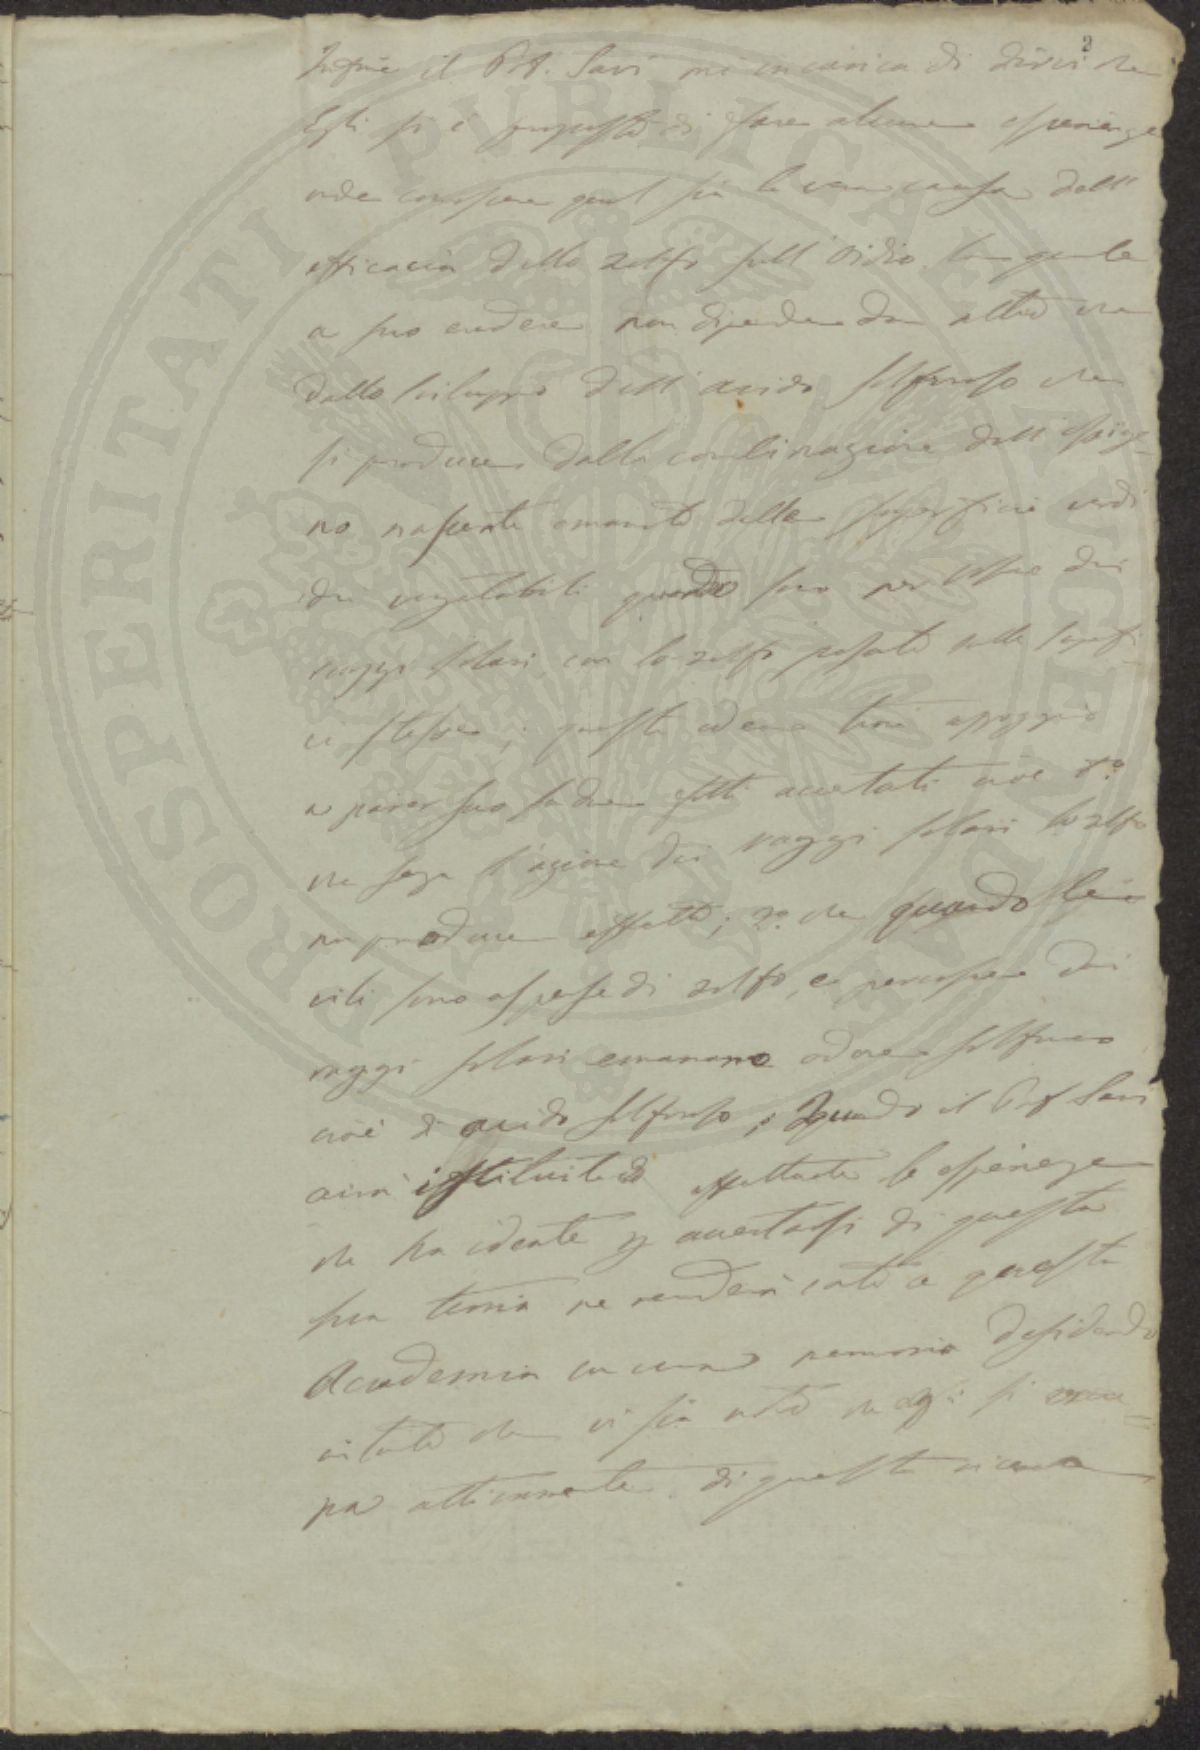 2
Infine il Prof. Savi mi incarica di dirvi che
Egli si è proposto di fare alcune esperienze
onde conoscere qual sia la vera causa dell'
efficacia dello zolfo sull'Oidio la quale
a suo credere non dipende da altro che
dallo sviluppo dell'acido solforoso che
si produce dalla combinazione dell'ossige-
no nascente emanato dalle superficie verdi
dei vegetabili quando sono percosse dai
raggi solari, con lo zolfo posato sulle superfi
cie stesse; questa idea trova appoggio
a parer suo su due fatti accertati cioè 1º
che senza l'azione dei raggi solari lo zolfo
non produce effetto; 2º che quando le
viti sono asperse di zolfo, e percosse dai
raggi solari emanano odore solforoso
cioè di acido solforoso; Quando il Prof Savi
avrà istituite ed effettuate le esperienze
che ha ideate per accertarsi di questa
sua teoria ne renderà conto a questa
Accademia con una memoria desiderando
intanto che vi sia noto che egli si occu=
pa attivamente di questa ricerca
PROSPERITATI PUBLICAE AUGENDAE